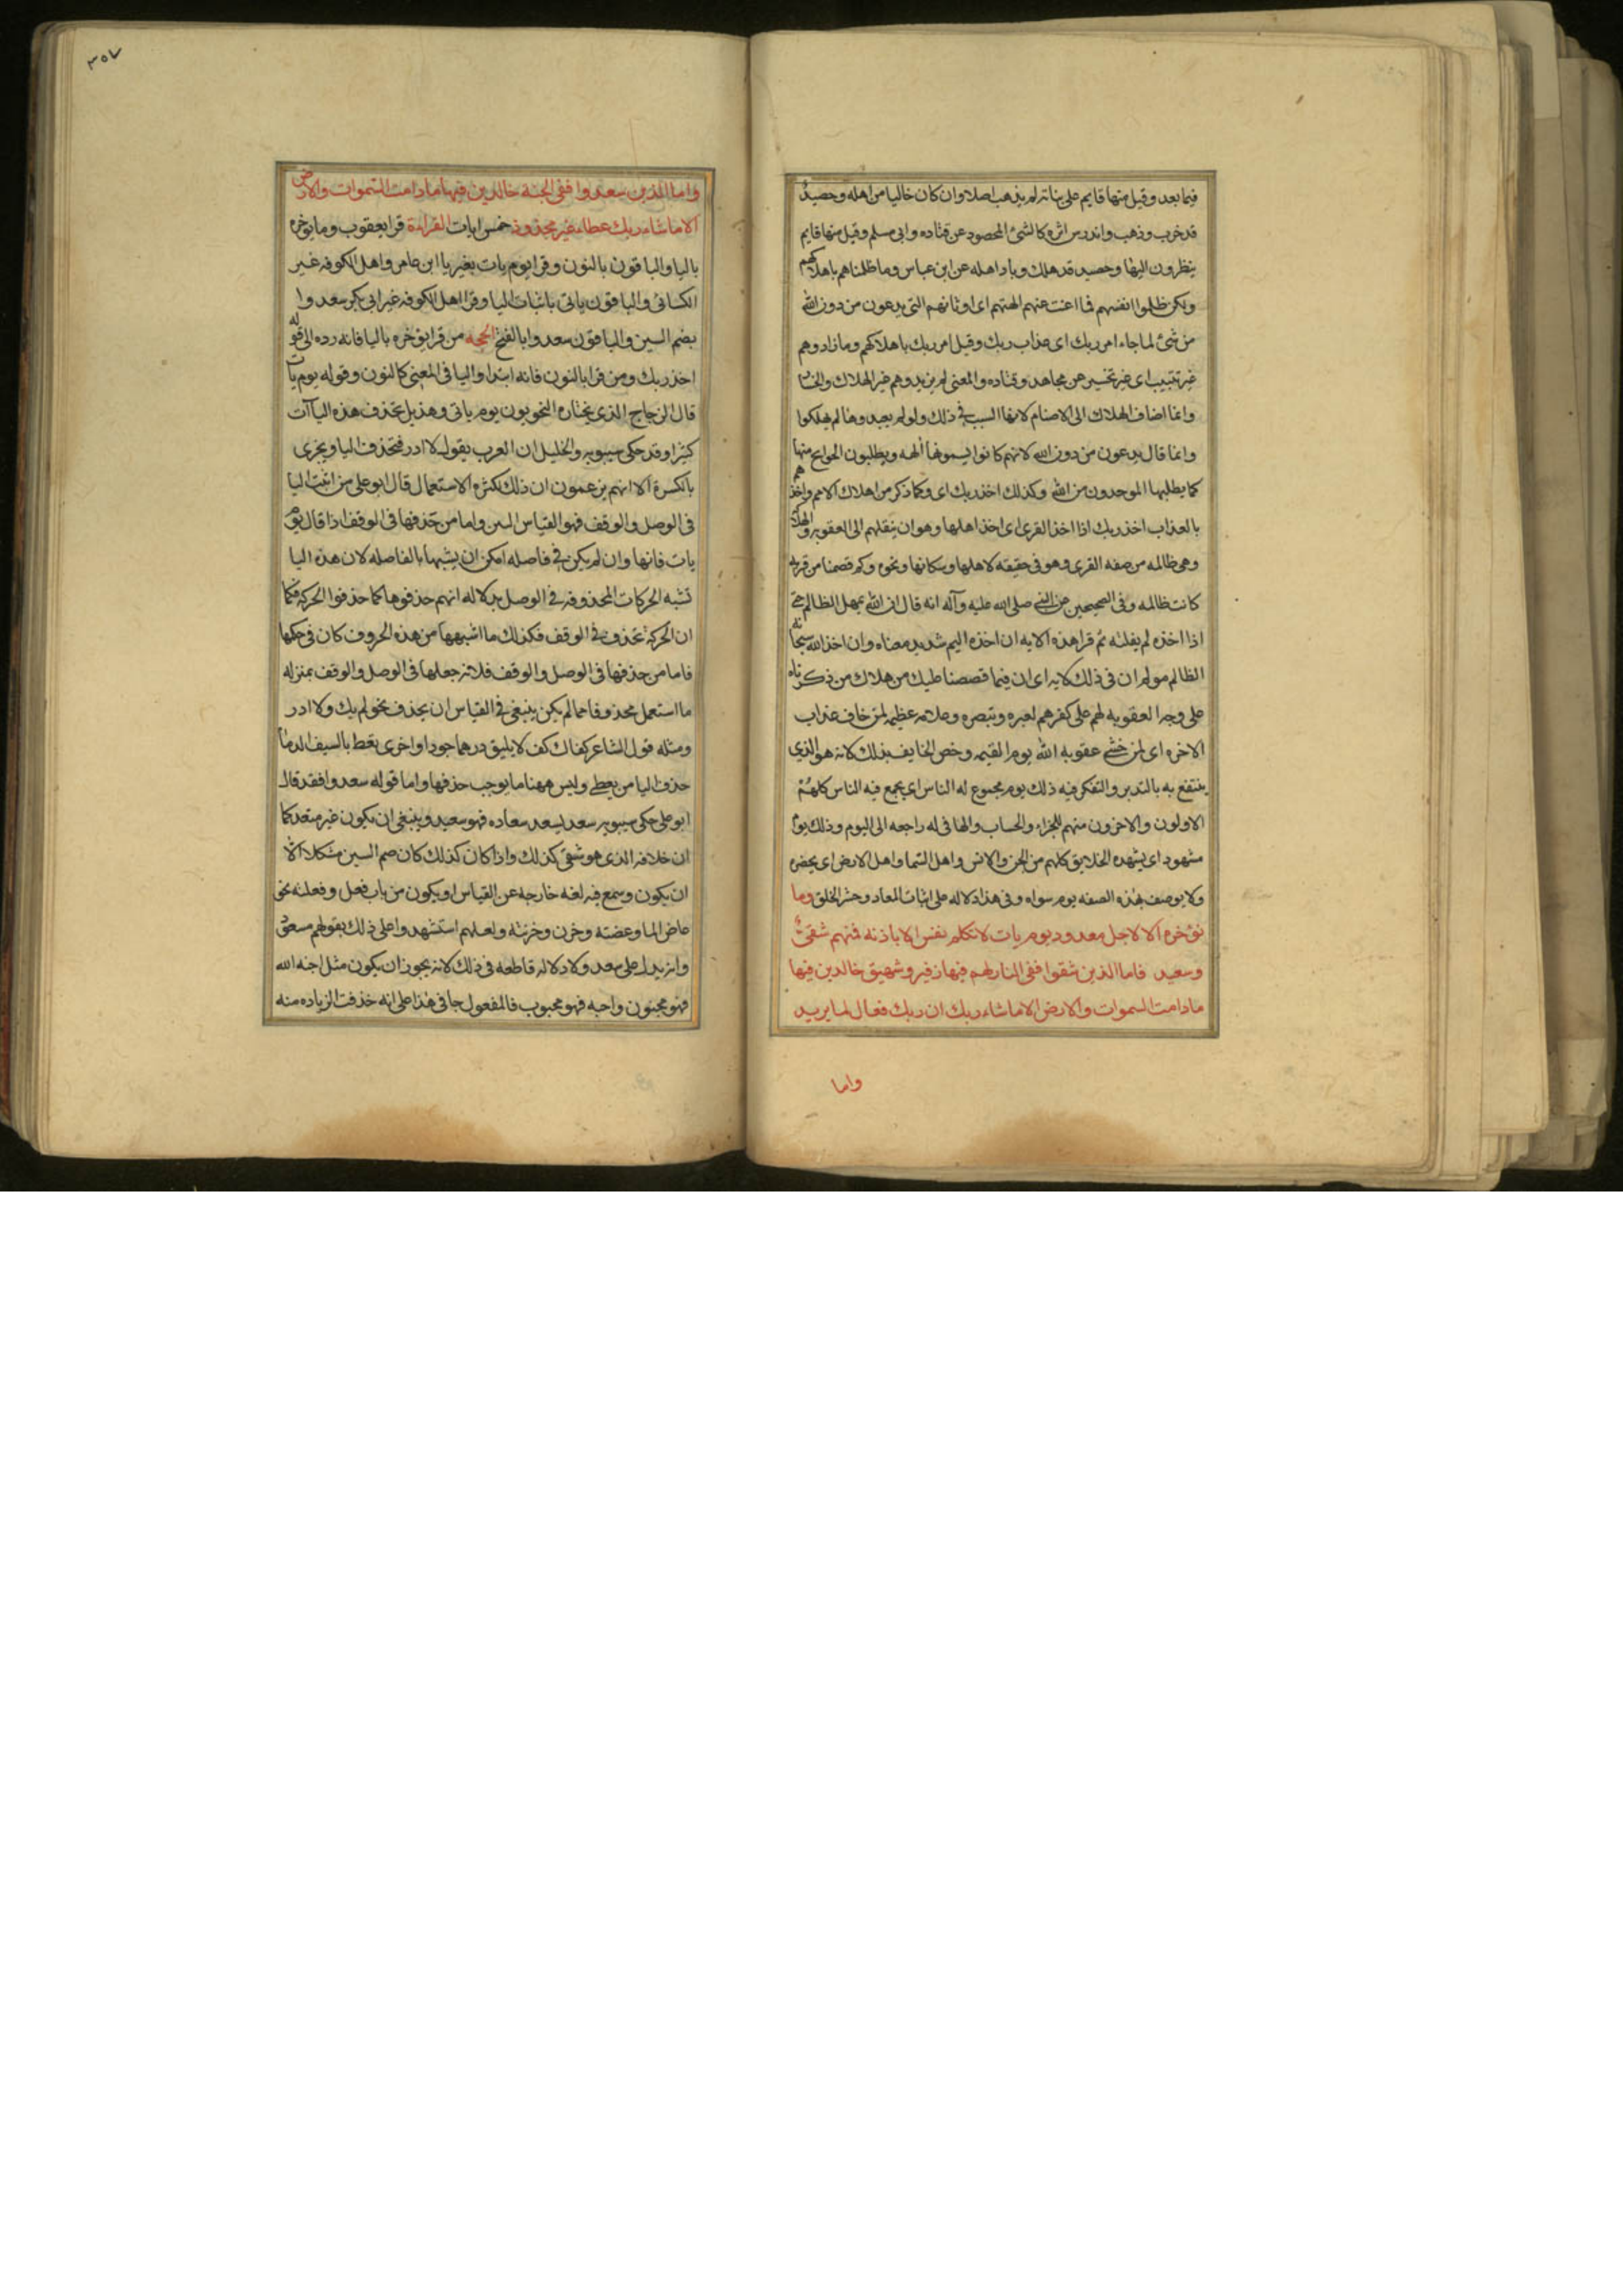 فيما بعد وقيل منها قايم على بنائه لم يذهب اصلا وان كان خاليا من اهله وحصيد
قد خرب وذهب واندرس اثره كالشئ المحصود عن قتاده وابى مسلم وقيل منها قايم
ينظرون اليها وحصيد قد هلك وباد اهله عن ابن عباس وما ظلمناهم باهلاكهم
ولكن ظلموا انفسهم فما اغنت عنهم الهتهم اى اوثانهم التى يدعون من دون الله
من شئ لما جاء امر ربك اى عذاب ربك وقيل امر ربك باهلاكهم وما زادوهم
غير تتبيب اى غير تخسير عن مجاهد وقتاده والمعنى لم يزيدوهم غير الهلاك والخسا
وانما اضاف الهلاك الى الاصنام لانها السبب فى ذلك ولو لم يعبدوها لم يهلكوا
وانما قال يدعون من دون الله لانهم كانوا يسمونها ألهه ويطلبون الحوايج منها
كما يطلبها الموحدون من الله وكذلك اخذ ربك اى وكما ذكر من اهلاك الامم واخذهم
بالعذاب اخذ ربك اذا اخذ القرى اى اخذ اهلها وهو ان ينقلهم الى العقوبه والهلاك
وهى ظالمه من صفه القرى وهو فى حقيقه لاهلها وسكانها ونحوه وكم قصمنا من قريه
كانت ظالمه وفى الصحيحين عن النبى صلى الله عليه وآله انه قال ان الله يمهل الظالم حتى
اذا اخذه لم يفلته ثم قرا هذه الايه ان اخذه اليم شديد معناه وان اخذ الله سبحانه
الظالم مولم ان فى ذلك لايه اى ان فيما قصصنا عليك من هلاك من ذكرناه
على وجه العقوبه لهم على كفرهم لعبره وتبصره وعلامه عظيمه لمن خاف عذاب
الاخره اى لمن خشى عقوبه الله يوم القيمه وخص الخايف بذلك لانه هو الذى
ينتفع به بالتدبر والتفكر فيه ذلك يوم مجموع له الناس اى يجمع فيه الناس كلهم
الاولون والاخرون منهم للجزاء والحساب والها فى له راجعه الى اليوم وذلك يوم
مشهود اى يشهده الخلايق كلهم من الجن والانس واهل السما واهل الارض اى يحضره
ولا يوصف بهذه الصفه يوم سواه وفى هذا دلاله على اثبات المعاد وحشر الخلق وما
نؤخره الا لاجل معدود يوم يات لا تكلم نفس الا باذنه فمنهم شقى
وسعيد فاما الذين شقوا ففى النار لهم فيها زفير وشهيق خالدين فيها
ما دامت السموات والارض الا ما شاء ربك ان ربك فعال لما يريد
واما
٣٥٧
واما الذين سعدوا ففى الجنة خالدين فيها ما دامت السموات والارض
الا ما شاء ربك عطاء غير مجذوذ خمس ايات القراءة قرا يعقوب وما يؤخره
باليا والباقون بالنون وقرا يوم يات بغير يا ابن عامر واهل الكوفه غير
الكسائى والباقون ياتى باثبات اليا وقرا اهل الكوفه غير ابى بكر سعدوا
بضم السين والباقون سعدوا بالفتح الحجه من قرا يؤخره باليا فانه رده الى قوله
اخذ ربك ومن قرا بالنون فانه ابتدا واليا فى المعنى كالنون وقوله يوم يات
قال الزجاج الذى يختاره النحويون يوم ياتى وهذيل تحذف هذه الياآت
كثيرا وقد حكى سيبويه والخليل ان العرب يقول لا ادر فتحذف اليا ويجزى
بالكسرة الا انهم يزعمون ان ذلك لكثره الاستعمال قال ابو على من اثبت اليا
فى الوصل والوقف فهو القياس البين واما من حذفها فى الوقف اذا قال يوم
يات فانها وان لم يكن فى فاصله امكن ان يشبهها بالفاصله لان هذه اليا
تشبه الحركات المحذوفه فى الوصل بدلاله انهم حذفوها كما حذفوا الحركه فكما
ان الحركة تحذف فى الوقف فكذلك ما اشبهها من هذه الحروف كان فى حكمها
فاما من حذفها فى الوصل والوقف فلانه جعلها فى الوصل والوقف بمنزله
ما استعمل محذوفا مما لم يكن ينبغى فى القياس ان يحذف نحو لم يك ولا ادر
ومثله قول الشاعر كفاك كف لا يليق درهما جودا واخرى تعط بالسيف الدما
حذف اليا من يعطى وليس ههنا ما يوجب حذفها واما قوله سعدوا فقد قال
ابو على حكى سيبويه سعد يسعد سعاده فهو سعيد وينبغى ان يكون غير متعد كما
ان خلافه الذى هو شقى كذلك واذا كان كذلك كان ضم السين مشكلا الا
ان يكون وسمع فيه لغه خارجه عن القياس او يكون من باب فعل وفعلته نحو
غاض الما وغضته وحزن وحزنته ولعلهم استشهدوا على ذلك بقولهم مسعود
وانه يدل على سعد ولا دلاله قاطعه فى ذلك لانه يجوز ان يكون مثل اجنه الله
فهو مجنون واحبه فهو محبوب فالمفعول جا فى هذا على انه حذفت الزياده منه